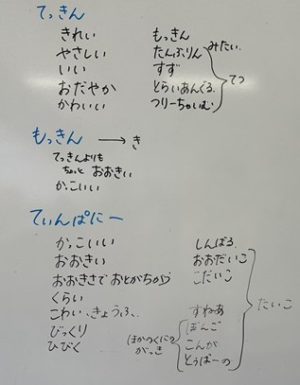 てっきん
きれい　もっきん
やさしい　たんぶりん　みたい
いい　すず
おだやか　とらいあんぐる　てつ
かわいい　つりーちゃいむ
もっきん → き
てっきんよりも
ちょっと おおきい
かっこいい
てぃんぱにー
かっこいい　しんばる
おおきい　おおだいこ
おおきさで おとがちがう　こだいこ
くらい　たいこ
こわい、きょうふ、　すねあ
びっくり　ぼんご
ひびく　ほかのくにの　こんが
がっき　とぅばーの